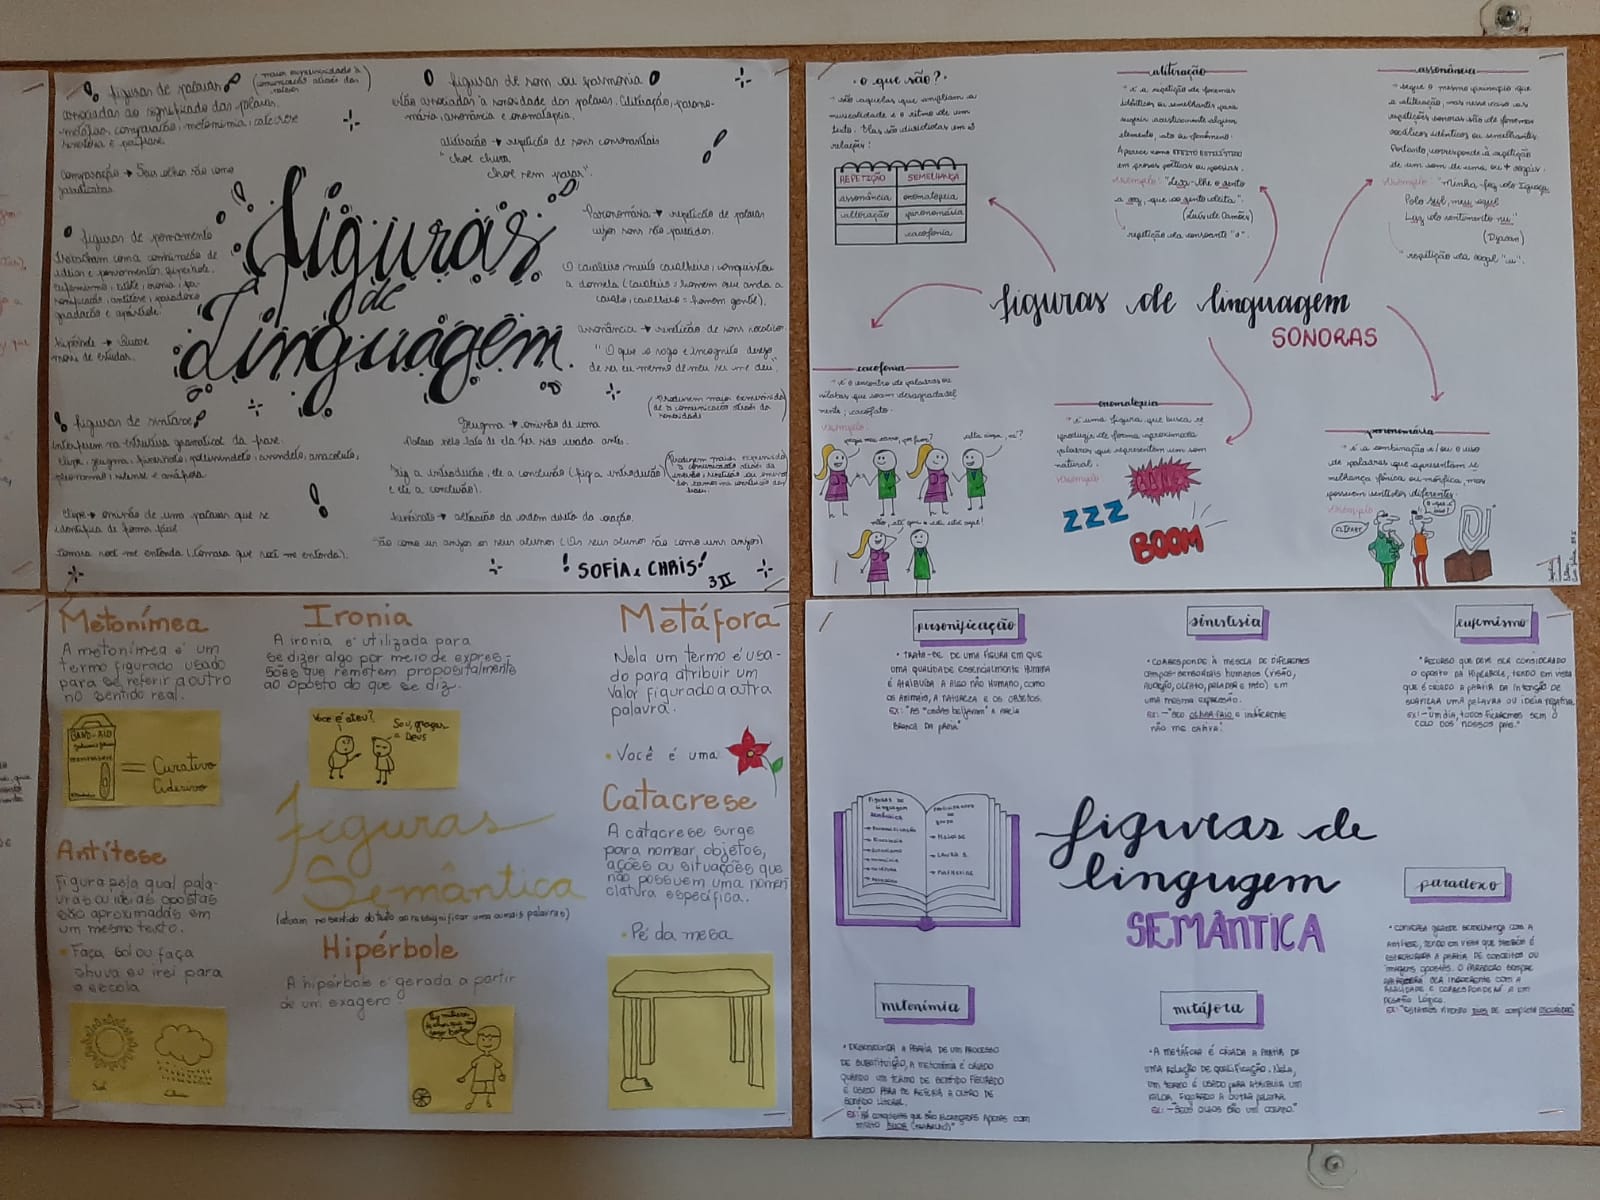 figuras de palavras
(maior expressividade à
comunicação através das
palavras)
associadas ao significado das palavras.
metáfora, comparação, metonímia, catacrese
sinestesia e perífrase
comparação → Seus olhos são como
jabuticabas.
figuras de som ou harmonia
estão associadas à sonoridade das palavras. Aliteração, parono-
másia, assonância e onomatopeia.
aliteração → repetição de sons consonantais
"chove chuva
chove sem parar".
figuras de pensamento
trabalham com a combinação de
ideias e pensamentos, hipérbole,
eufemismo, litote, ironia, pe-
rsonificação, antítese, paradoxo
gradação e apóstrofe.
hipérbole → Quase
morri de estudar.
figuras
de
Linguagem
Paronomásia → repetição de palavras
cujos sons são parecidos.
O cavaleiro muito cavalheiro, conquistou
a donzela (cavaleiro = homem que anda a
cavalo, cavalheiro = homem gentil).
assonância → repetição de sons vocálicos
"O que o vago e incógnito desejo
de ser eu mesmo de meu ser me deu".
figuras de sintaxe
Interferem na estrutura gramatical da frase.
Elipse, zeugma, hipérbato, polissíndeto, assíndeto, anacoluto,
pleonasmo, silepse e anáfora.
Elipse → omissão de uma palavra que se
identifica de forma fácil
Tomara você me entenda (Tomara que você me entenda).
Zeugma → omissão de uma
Palavra pelo fato de ela ter sido usada antes.
Fiz a introdução, ele a conclusão (fiz a introdução
e ele a conclusão).
hipérbato → alteração da ordem direta da oração.
São como uns anjos os seus alunos (Os seus alunos são como uns anjos)
SOFIA e CHRIS!
3 II
figuras de linguagem
SONORAS
• o que são? •
são aquelas que ampliam a
musicalidade e o ritmo de um
texto. Elas são divididas em 2
relações:
REPETIÇÃO SEMELHANÇA
assonância onomatopeia
aliteração paronomásia
cacofonia
aliteração
é a repetição de fonemas
idênticos ou semelhantes para
sugerir acusticamente algum
elemento, ato ou fenômeno.
Aparece como EFEITO ESTILÍSTICO
em prosas poéticas ou poesias.
Exemplo: "Leva-lhe o vento
a voz, que ao vento deita".
(Luís de Camões)
repetição da consoante "v".
assonância
segue o mesmo princípio que
a aliteração, mas nesse caso as
repetições sonoras são de fonemas
vocálicos idênticos ou semelhantes.
Portanto, corresponde à repetição
de um som de uma ou + vogais.
Exemplo: "Minha foz do Iguaçu
Polo sul, meu azul
Luz do sentimento nu"
(Djavan)
repetição da vogal "u".
cacofonia
é o encontro de palavras ou
sílabas que soam desagradável
mente; cacófato.
Exemplo:
onomatopeia
é uma figura que busca re
produzir de forma aproximada
palavras que representem um som
natural.
Exemplo
BANG
ZZZ
BOOM
paronomásia
é a combinação e/ou o uso
de palavras que apresentam se
melhança fônica ou mórfica, mas
possuem sentidos diferentes.
Exemplo
CLIPART
Metonímea
A metonímea é um
termo figurado usado
para se referir a outro
no sentido real.
BAND-AID
= Curativo
Adesivo
Ironia
A ironia é utilizada para
se dizer algo por meio de expres-
sões que remetem propositalmente
ao oposto do que se diz.
Você é ateu?
Sou, graças
a Deus
Metáfora
Nela um termo é usa-
do para atribuir um
valor figurado a outra
palavra.
• Você é uma
Antítese
Figura pela qual pala-
vras ou idéias opostas
são aproximadas em
um mesmo texto.
• Faça sol ou faça
chuva eu irei para
a escola
Sol
Chuva
Figuras
Semântica
(atuam no sentido do texto ao ressignificar uma ou mais palavras)
Hipérbole
A hipérbole é gerada a partir
de um exagero
Catacrese
A catacrese surge
para nomear objetos,
ações ou situações que
não possuem uma nomen
clatura específica.
• Pé da mesa
figuras de
lingugem
SEMÂNTICA
personificação
• TRATA-SE DE UMA FIGURA EM QUE
UMA QUALIDADE ESSENCIALMENTE HUMANA
É ATRIBUÍDA A ALGO NÃO HUMANO, COMO
OS ANIMAIS, A NATUREZA E OS OBJETOS.
EX: "AS "ONDAS BEIJAVAM" A AREIA
BRANCA DA PRAIA"
sinestesia
• CORRESPONDE À MESCLA DE DIFERENTES
CAMPOS SENSORIAIS HUMANOS (VISÃO,
AUDIÇÃO, OLFATO, PALADAR E TATO) EM
UMA MESMA EXPRESSÃO.
EX: -"SEU OLHAR FRIO E INDIFERENTE
NÃO ME CATIVA".
eufemismo
• RECURSO QUE DEVE SER CONSIDERADO
O OPOSTO DA HIPÉRBOLE, TENDO EM VISTA
QUE É CRIADO A PARTIR DA INTENÇÃO DE
SUAVIZAR UMA PALAVRA OU IDEIA NEGATIVA.
EX: -"UM DIA, TODOS FICAREMOS SEM O
COLO DOS NOSSOS PAIS."
Figuras de
linguagem
semântica
→ Personificação
→ Sinestesia
→ Eufemismo
→ Paradoxo
→ HELOISE
→ LAURA S.
paradoxo
• CONVERSA GRANDE SEMELHANÇA COM A
ANTÍTESE, TENDO EM VISTA QUE TAMBÉM É
ESTRUTURADA A PARTIR DE CONCEITOS OU
IMAGENS OPOSTAS. O PARADOXO SEMPRE
SERÁ INCOERENTE COM A
REALIDADE E CORRESPONDERÁ A UM
DESAFIO LÓGICO.
metonímia
• DESENVOLVIDA A PARTIR DE UM PROCESSO
DE SUBSTITUIÇÃO, A METONÍMIA É CRIADO
QUANDO UM TERMO DE SENTIDO FIGURADO
É USADO PARA SE REFERIR A OUTRO DE
SENTIDO LITERAL.
EX: "HÁ CONQUISTAS QUE SÃO ALCANÇADAS APENAS COM
MUITO SUOR (TRABALHO)"
metáfora
• A METÁFORA É CRIADA A PARTIR DE
UMA RELAÇÃO DE QUALIFICAÇÃO. NELA,
UM TERMO É USADO PARA ATRIBUIR UM
VALOR FIGURADO A OUTRA PALAVRA.
EX: -"SEUS OLHOS SÃO UM OCEANO."